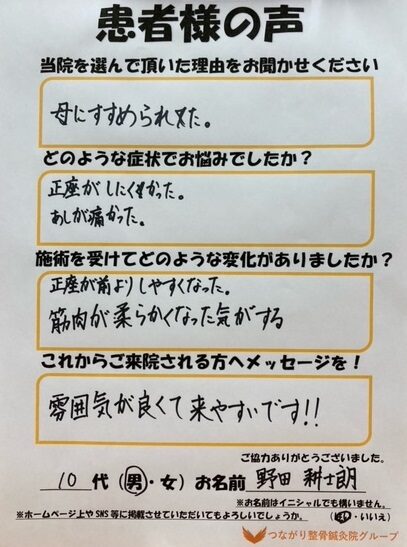 患者様の声
当院を選んで頂いた理由をお聞かせください
母にすすめられた。
どのような症状でお悩みでしたか？
正座がしにくかった。
あしが痛かった。
施術を受けてどのような変化がありましたか？
正座が前よりしやすくなった。
筋肉が柔らかくなった気がする
これからご来院される方へメッセージを！
雰囲気が良くて来やすいです!!
ご協力ありがとうございました。
10代（男・女）お名前 野田 耕士朗
※お名前はイニシャルでも構いません。
※ホームページ上やSNS等に掲載させていただいてもよろしいでしょうか。（はい・いいえ）
つながり整骨鍼灸院グループ